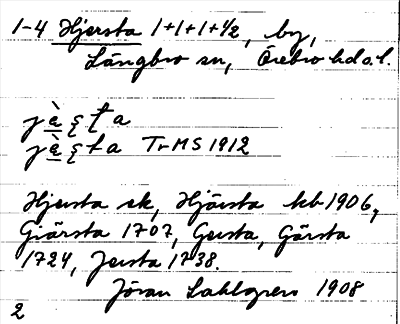 1-4 Hjersta 1+1+1+1/2, by,
Längbro sn, Örebro hd o. l.
jà̠ʂʈa
jà̠ʂta TrMS 1912
Hjersta sk, Hjärsta kb 1906,
Giärsta 1707, Gersta, Gärsta
1724, Jersta 1738.
Jöran Sahlgren 1908
2